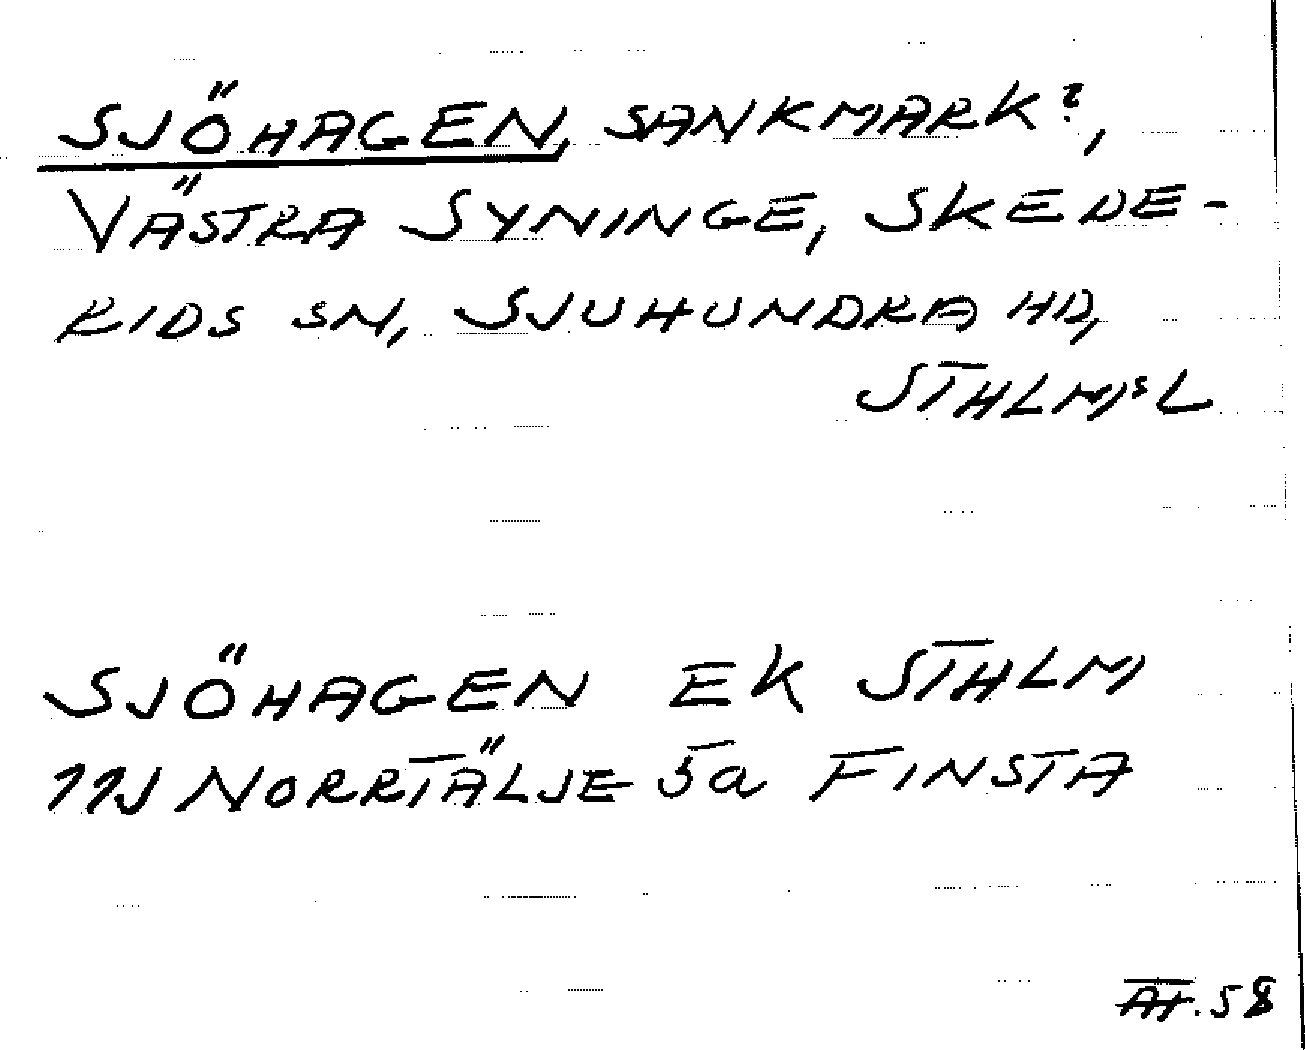 SJÖHAGEN, SANKMARK?,
VÄSTRA SYNINGE, SKEDE-
RIDS SN, SJUHUNDRA HD,
STHLMS L
SJÖHAGEN EK STHLM
11J NORRTÄLJE 5a FINSTA
AT. 58